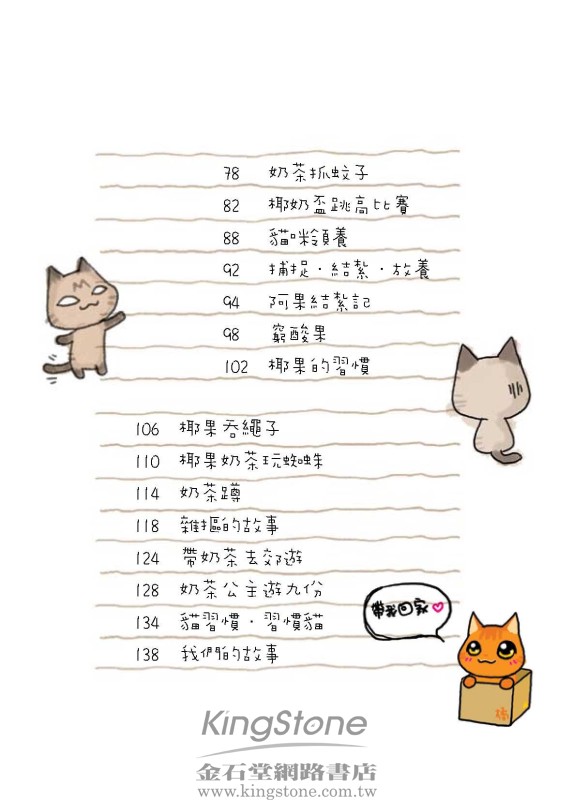 78 奶茶抓蚊子
82 椰奶盃跳高比賽
88 貓咪領養
92 捕捉・結紮・放養
94 阿果結紮記
98 窮酸果
102 椰果的習慣
106 椰果吞繩子
110 椰果奶茶玩蜘蛛
114 奶茶蹲
118 雜摳的故事
124 帶奶茶去郊遊
128 奶茶公主遊九份
134 貓習慣・習慣貓
138 我們的故事
帶我回家
橘
KingStone
金石堂網路書店
www.kingstone.com.tw